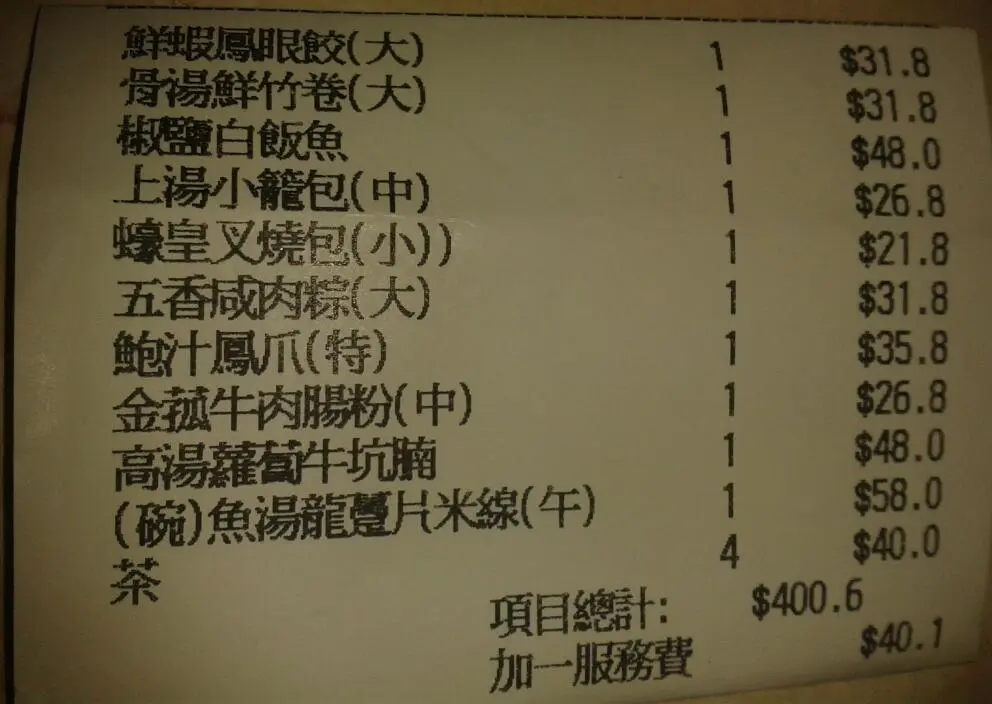 鮮蝦鳳眼餃(大) 1 $31.8
骨湯鮮竹卷(大) 1 $31.8
椒鹽白飯魚 1 $48.0
上湯小籠包(中) 1 $26.8
蠔皇叉燒包(小)) 1 $21.8
五香咸肉粽(大) 1 $31.8
鮑汁鳳爪(特) 1 $35.8
金菰牛肉腸粉(中) 1 $26.8
高湯蘿蔔牛坑腩 1 $48.0
(碗)魚湯龍躉片米線(午) 1 $58.0
茶 4 $40.0
項目總計: $400.6
加一服務費 $40.1